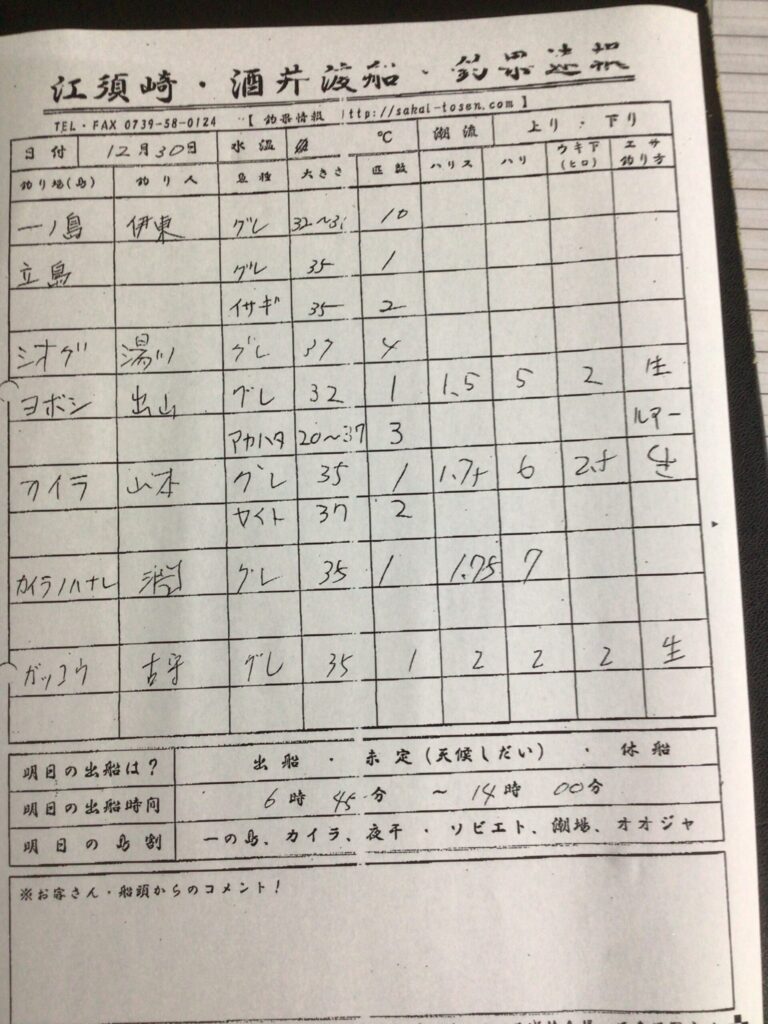 江須崎・酒井渡船・釣果速報
TEL・FAX 0739-58-0124 【 釣果情報 http://sakai-tosen.com 】
日付 12月30日 水温 ℃ 潮流 上り・下り
釣り場(島) 釣り人 魚種 大きさ 匹数 ハリス ハリ ウキ下(ヒロ) エサ釣り方
一ノ島 伊東 グレ 10
立島 グレ 35 1
イサギ 35 2
シオグ 湯川 グレ 37 4
ヨボシ 出山 グレ 32 1 1.5 5 2 生
アカハタ 20〜37 3 ルアー
カイラ 山本 グレ 35 1 6 生
37 2
カイラノハナレ グレ 35 1 1.75 7
ガッコウ 古守 グレ 35 1 2 2 2 生
明日の出船は? 出船・未定(天候しだい)・休船
明日の出船時間 6時45分 〜 14時00分
明日の島割 一の島、カイラ、夜干・ソビエト、潮場、オオジャ
※お客さん・船頭からのコメント!